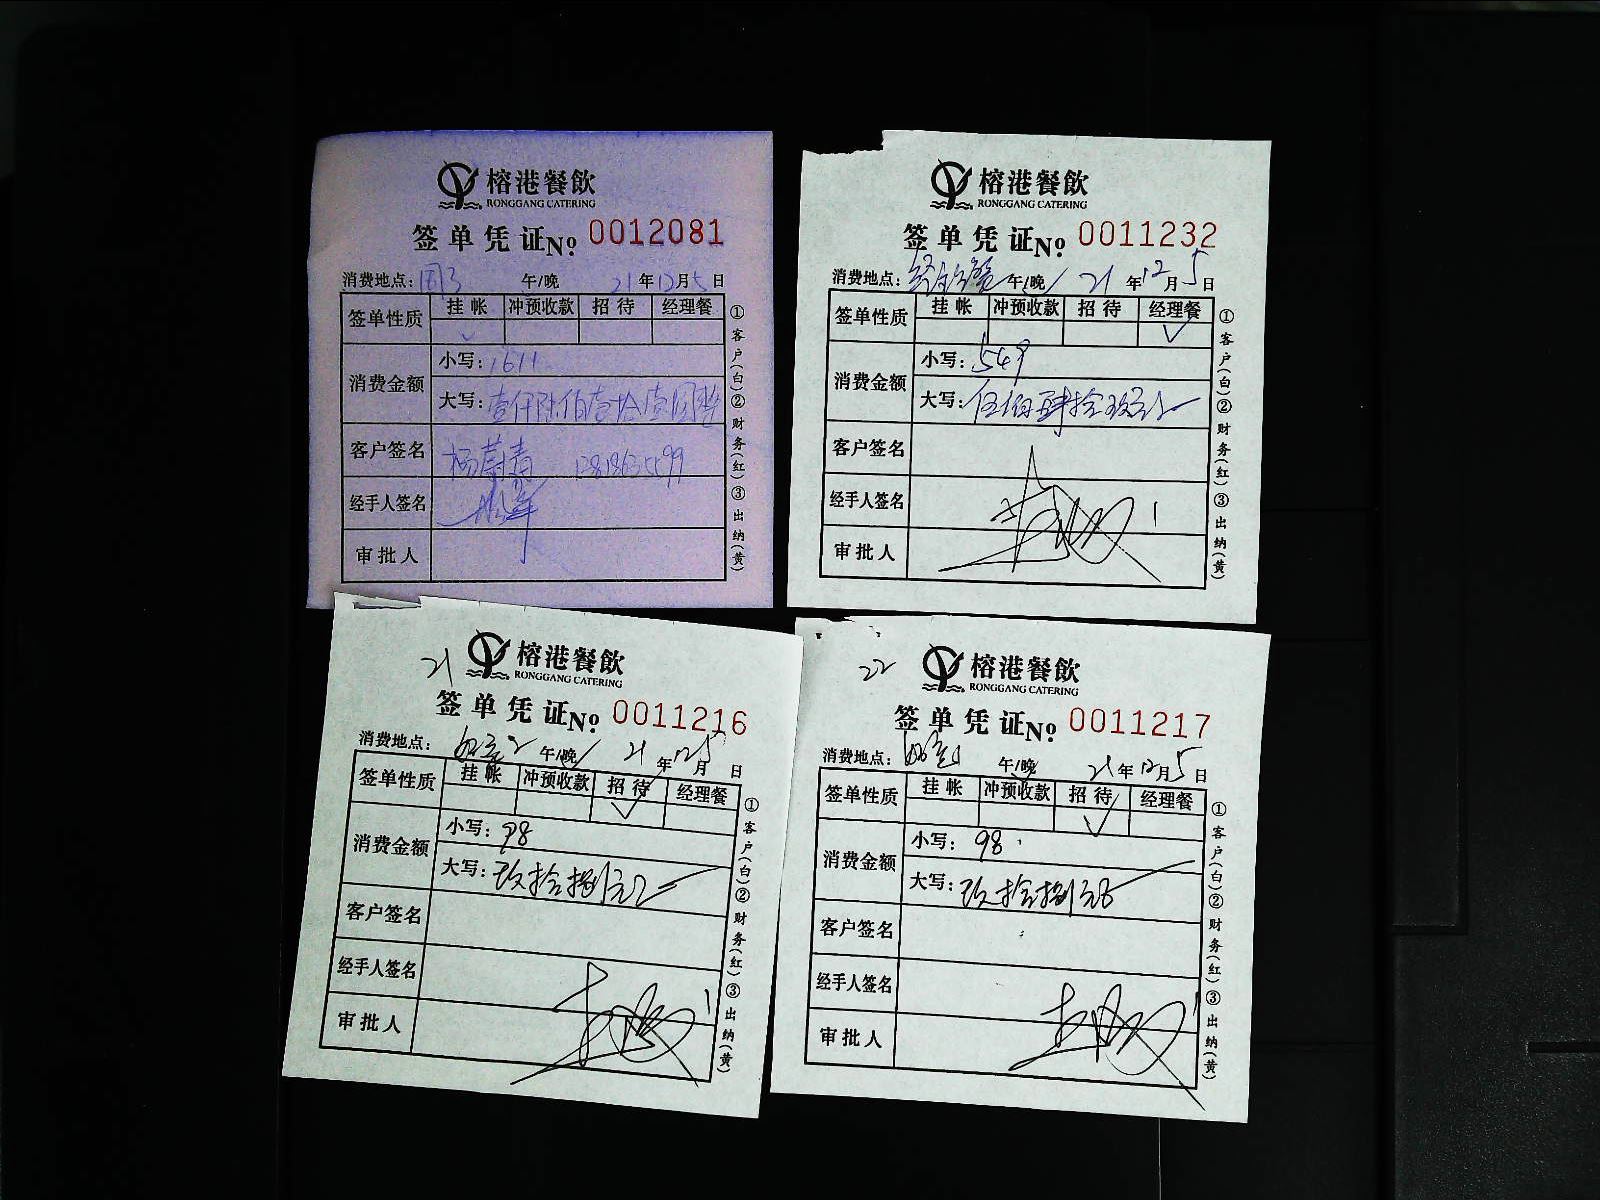 榕港餐飲
RONGGANG CATERING
签单凭证№ 0012081
消费地点: 午/晚 21年12月5日
签单性质 挂帐 冲预收款 招待 经理餐
消费金额 小写: 1611
大写: 壹仟陆佰壹拾壹圆整
客户签名 杨蔚青
经手人签名
审批人
①客户(白)②财务(红)③出纳(黄)
榕港餐飲
RONGGANG CATERING
签单凭证№ 0011232
消费地点: 午/晚 21年12月5日
签单性质 挂帐 冲预收款 招待 经理餐
✓
消费金额 小写: 549
大写: 伍佰肆拾玖元
客户签名
经手人签名
审批人
①客户(白)②财务(红)③出纳(黄)
21
榕港餐飲
RONGGANG CATERING
签单凭证№ 0011216
消费地点: 午/晚 21年12月5日
签单性质 挂帐 冲预收款 招待 经理餐
✓
消费金额 小写: 98
大写: 玖拾捌元
客户签名
经手人签名
审批人
①客户(白)②财务(红)③出纳(黄)
22
榕港餐飲
RONGGANG CATERING
签单凭证№ 0011217
消费地点: 午/晚 21年12月5日
签单性质 挂帐 冲预收款 招待 经理餐
✓
消费金额 小写: 98
大写: 玖拾捌元
客户签名
经手人签名
审批人
①客户(白)②财务(红)③出纳(黄)